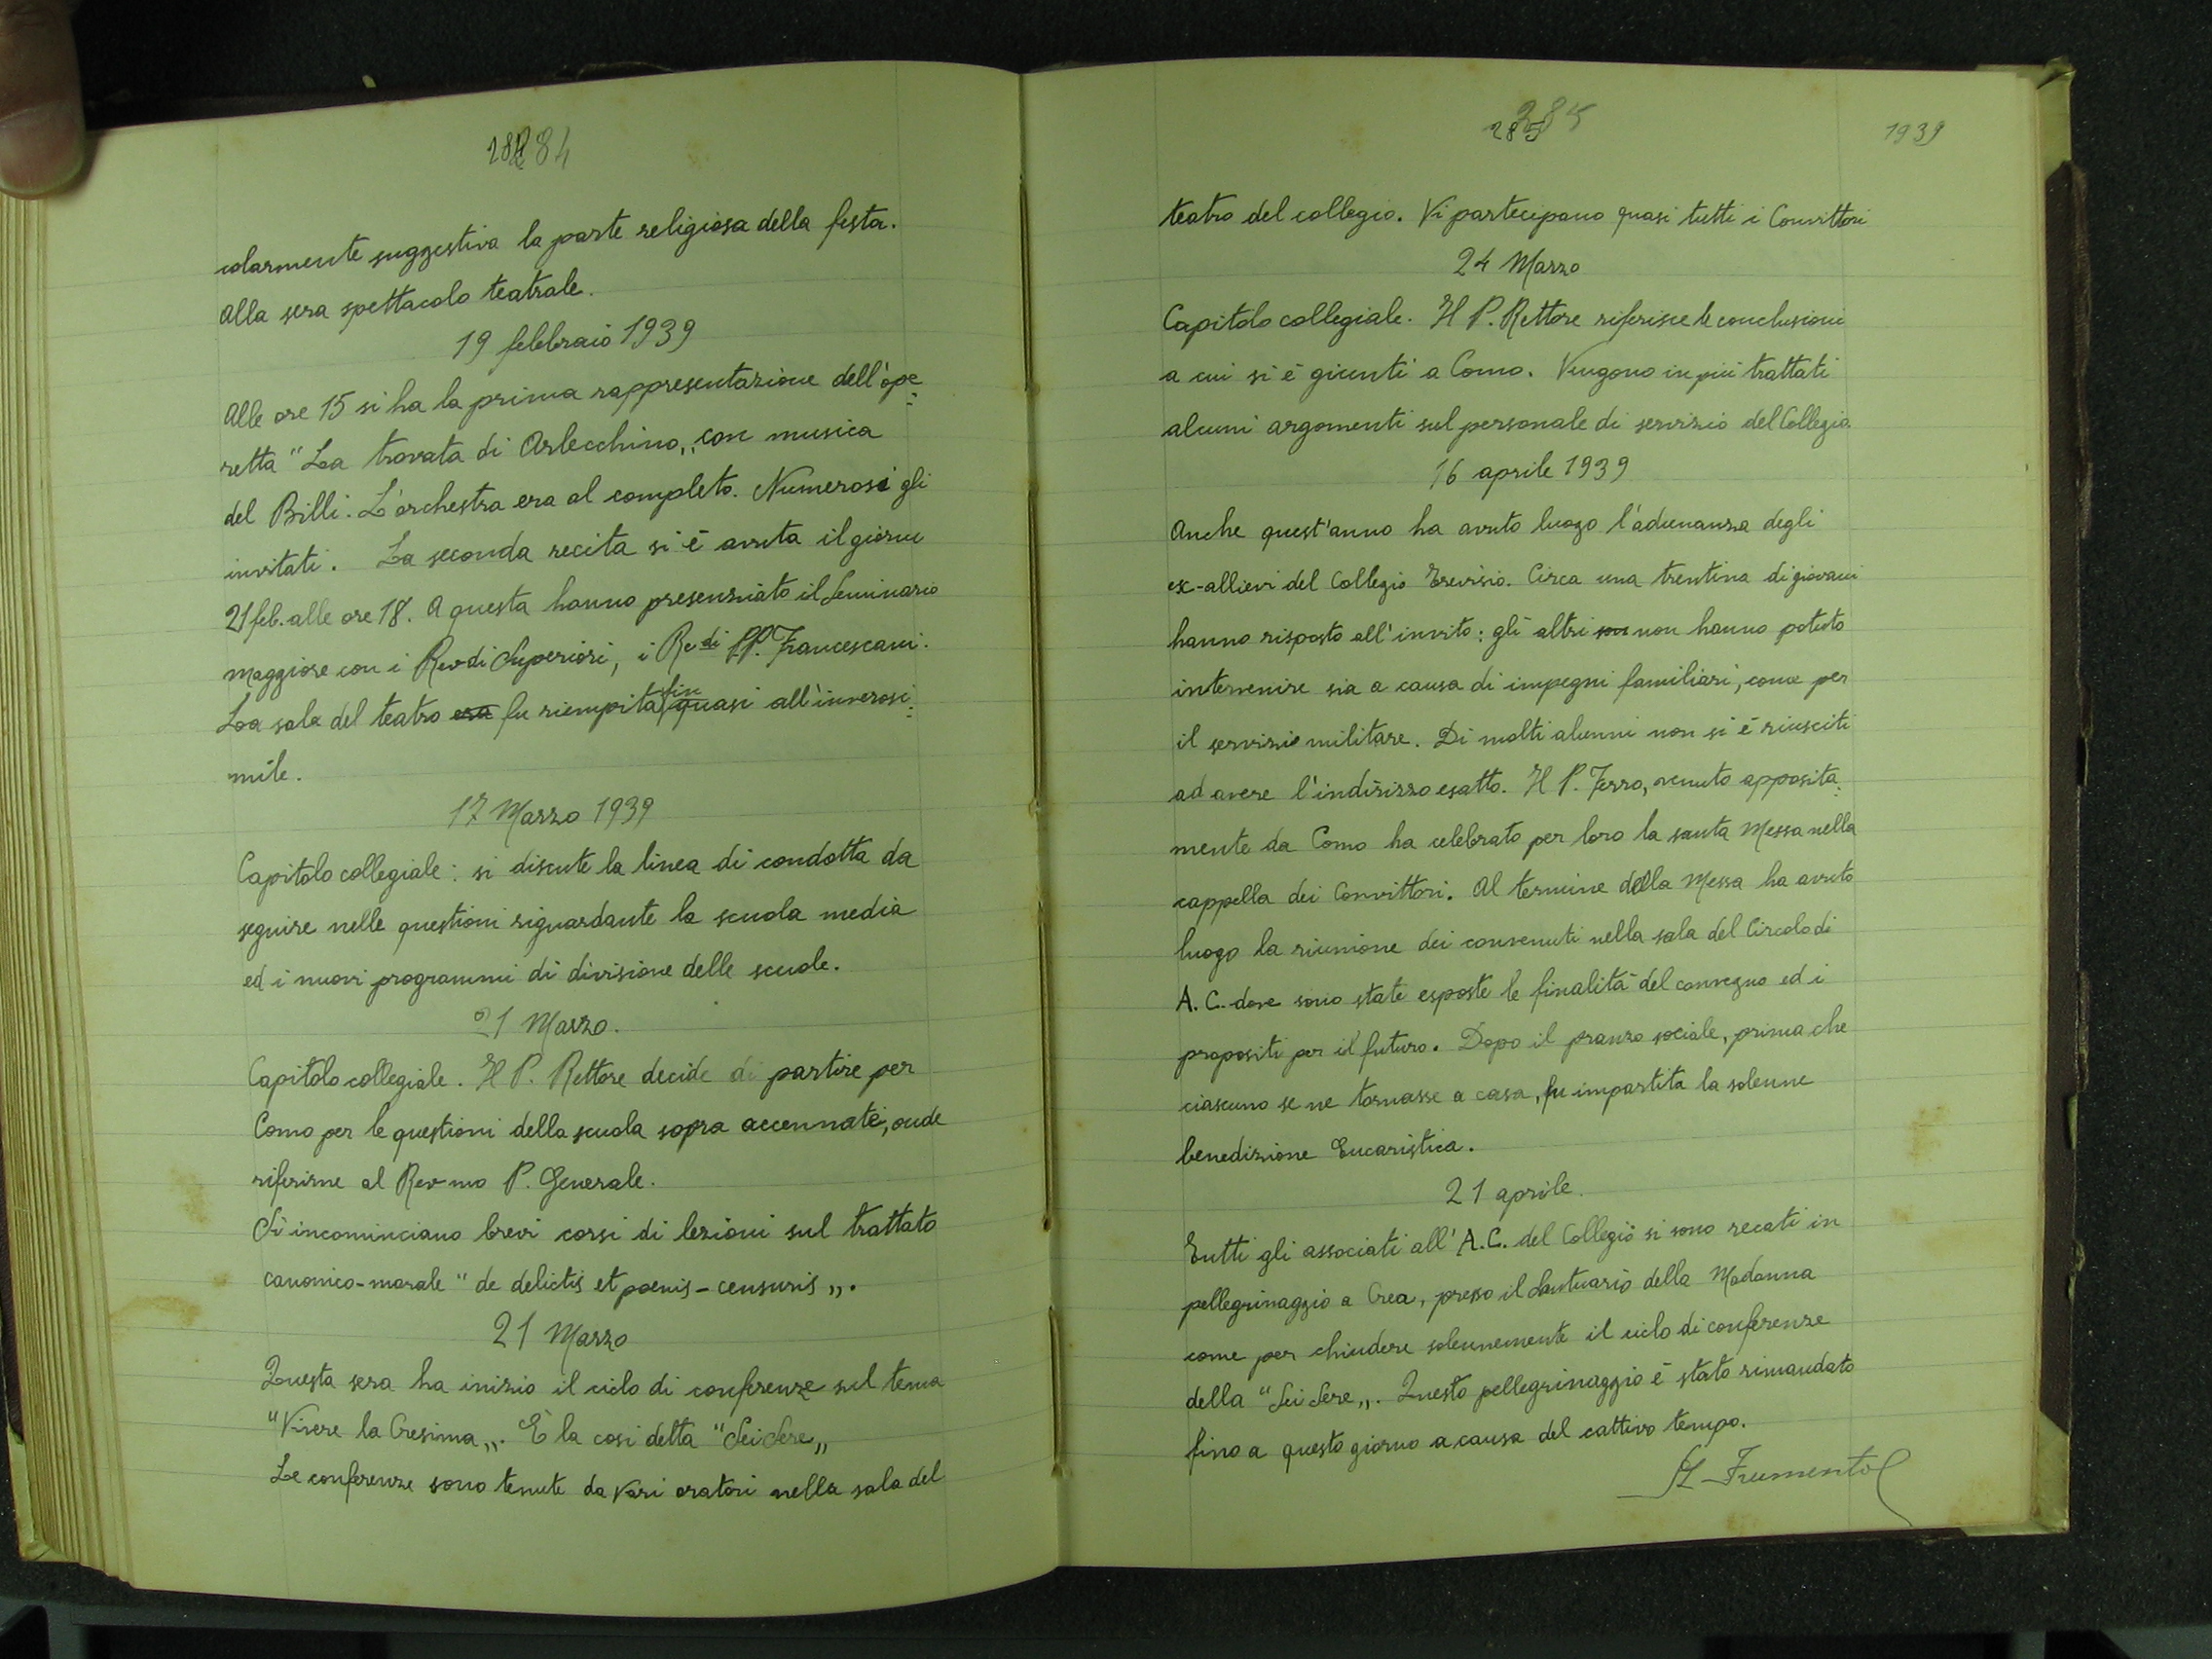 284
colarmente suggestiva la parte religiosa della festa.
Alla sera spettacolo teatrale.
19 febbraio 1939
Alle ore 15 si ha la prima rappresentazione dell'ope
retta "La trovata di Arlecchino„ con musica
del Billi. L'orchestra era al completo. Numerosi gli
invitati. La seconda recita si è avuta il giorno
21 feb. alle ore 18. A questa hanno presenziato il Seminario
Maggiore con i Rev di Superiori, i Re di PP. Francescani.
La sala del teatro era fu riempita fin quasi all'inverosi
mile.
17 Marzo 1939
Capitolo collegiale: si discute la linea di condotta da
seguire nelle questioni riguardante la scuola media
ed i nuovi programmi di divisione delle scuole.
21 Marzo.
Capitolo collegiale. Il P. Rettore decide di partire per
Como per le questioni della scuola sopra accennate, onde
riferirne al Rev-mo P. Generale.
Si incominciano brevi corsi di lezioni sul trattato
canonico-morale "de delictis et poenis-censuris„.
21 Marzo
Questa sera ha inizio il ciclo di conferenze sul tema
"Vivere la Cresima„. È la cosi detta "Sei Sere„
Le conferenze sono tenute da vari oratori nella sala del
285
1939
teatro del collegio. Vi partecipano quasi tutti i Convittori
24 Marzo
Capitolo collegiale. Il P. Rettore riferisce le conclusioni
a cui si è giunti a Como. Vengono in più trattati
alcuni argomenti sul personale di servizio del Collegio.
16 aprile 1939
Anche quest'anno ha avuto luogo l'adunanza degli
ex-allievi del Collegio Trevisio. Circa una trentina di giovani
hanno risposto all'invito: gli altri non hanno potuto
intervenire sia a causa di impegni familiari, come per
il servizio militare. Di molti alunni non si è riusciti
ad avere l'indirizzo esatto. Il P. Ferro, venuto apposita
mente da Como ha celebrato per loro la santa Messa nella
cappella dei Convittori. Al termine della Messa ha avuto
luogo la riunione dei convenuti nella sala del Circolo di
A. C. dove sono state esposte le finalità del convegno ed i
propositi per il futuro. Dopo il pranzo sociale, prima che
ciascuno se ne tornasse a casa, fu impartita la solenne
benedizione Eucaristica.
21 aprile.
Tutti gli associati all'A.C. del Collegio si sono recati in
pellegrinaggio a Crea, presso il Santuario della Madonna
come per chiudere solennemente il ciclo di conferenze
della "Sei Sere„. Questo pellegrinaggio è stato rimandato
fino a questo giorno a causa del cattivo tempo.
Frumento